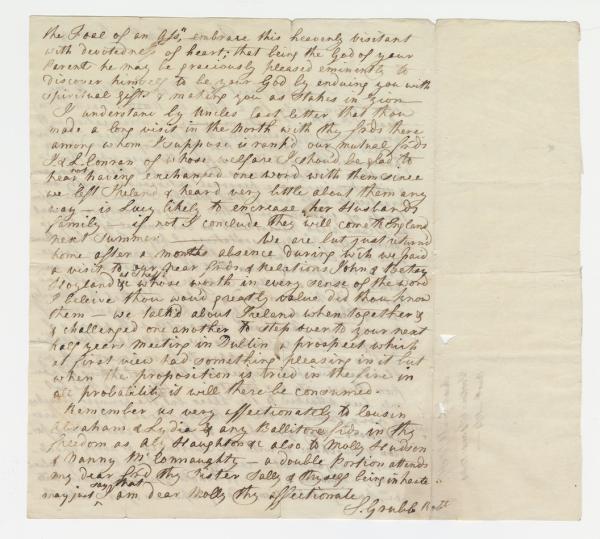 the Foal of an Ass," embrace this heavenly visitant
with devotedness of heart; that being the God of your
Parent he may be graciously pleased eminently to
discover himself to be your God by enduing you with
spiritual gifts & making you as Stakes in Zion —
I understand by Uncles last letter that thou
made a long visit in the North with thy frds there
among whom I suppose is rank'd our mutual frds
J & L Conran of whose welfare I should be glad to
hear not having exchanged one word with them since
we left Ireland & heard very little about them any
way — is Lucy likely to encrease her Husbands
family — if not I conclude they will come to England
next summer — We are but just return'd
home after a months absence during wch we paid
a visit to our near frds & Relations John & Betsey
Hoyland whose worth in every sense of the word
I believe thou would greatly value did thou know
them — we talk'd about Ireland when together &
& challenged one another to step over to your next
half years meeting in Dublin a prospect which
at first view had something pleasing in it but
when the proposition is tried in the fire in
all probability it will there be consumed.
Remember us very affectionately to Cousin
Abraham & Lydia & any Ballitore frds in thy
freedom as Haughton &c also to Molly Hudson
& Nanny McConnaughty — a double Portion attends
my dear frd thy Sister Sally & thyself being in haste
may just say that I am dear Molly thy affectionate
S. Grubb